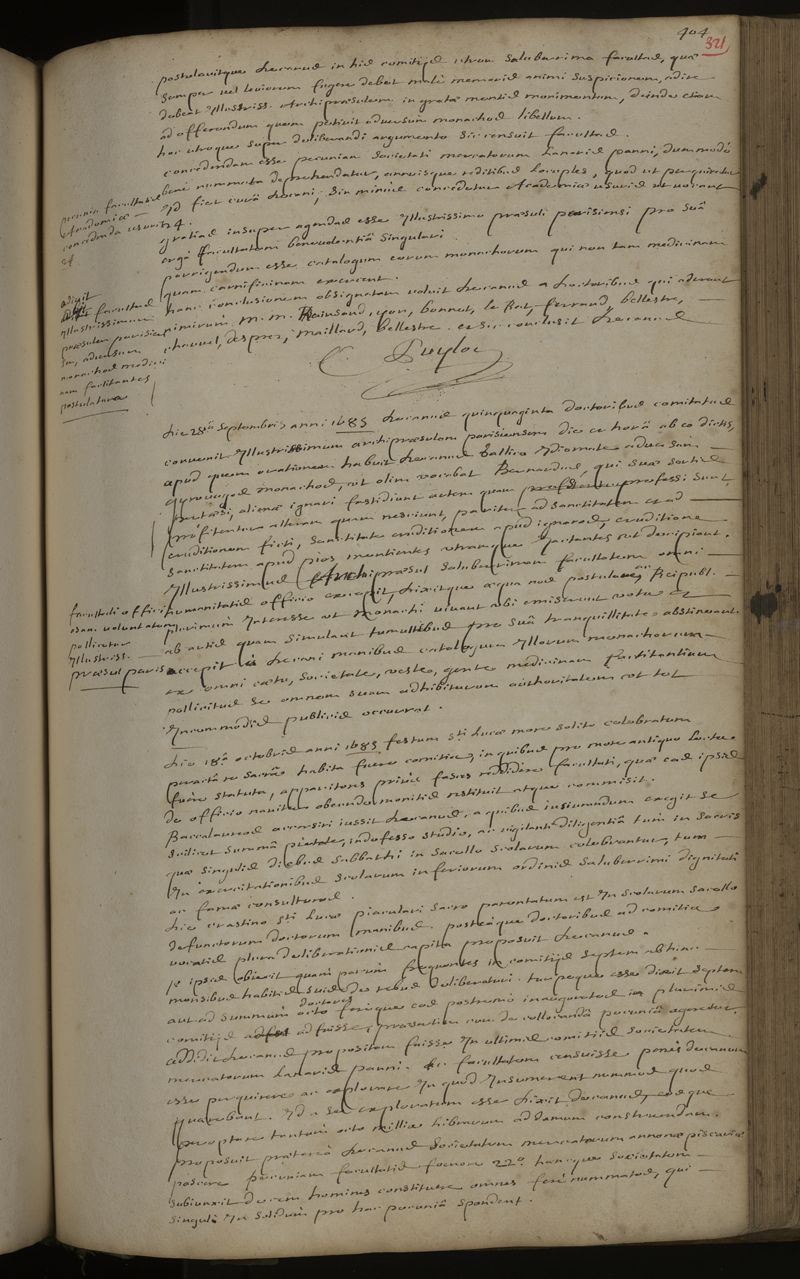 404
321
postulavitque decanus in his comitiis utrum saluberrima facultas, quæ
semper vel leviorem fugere debet malè memoris animi suspicionem, adire
debeat Illustriss. Archipræsulem in gratæ mentis monimentum, deinde etiam
ad offerendum quem petivit adversum monachos libellum.
hoc utroque super deliberandi argumento sic censuit facultas.
concedendam esse pecuniam societati mercatorum lanarii panni, dummodò
benè nummata deprehendatur, annuisque reditibus locuples, quod ut perquiratur
id fiet curâ decani; sin minùs concedetur Academiæ usuris ut vocant
24.
pecunia facultatis
Academiæ
concedenda usuris
24
gratias insuper agendas esse Illustrissimo præsuli parisiensi pro suâ
ergà facultatem benevolentiâ singulari.
porrigendum esse catalogum eorum monachorum qui non tam medicinam
quam carnificinam exercent.
hanc conclusionem obsignatam voluit decanus a doctoribus qui aderant
nimirum M. M. Rainsand, yon, bonnet, le Rat, ferrand, bellestre,
chauvel, despres, Maillard, bellestre. et sic conclusit decanus
C. Puylon
adijt
facultas
Illustrissimum
præsulem parisien
sem, adversum
monachos medici
nam factitantes
postulatura
die 28â septembris anni 1685 decanus quinquaginta doctoribus comitatus
convenit Illustrissimum archipræsulem parisiensem die et horâ ab eo dictis,
apud quem orationem habuit decanus Gallico Idiomate aduersùm
gyrovagos monachos, ut olim vocabat Bernardus, qui suæ sortis
pertæsi, alienæ ignari fastidiunt artem quam professi sunt,
profitentur alteram quam nesciunt, pariter ad sanctitatem et ad
eruditionem ficti, sanctitate eruditionem apud ignaros, eruditione
sanctitatem apud pios mentientes utramque jactantes ut decipiant.
Illustrissimus Archipræsul saluberrimam facultatem omni
humanitatis officio excepit, dixitque æqua nos postulare, Reipubl.
plurimùm Interesse ut monachi vivant ubi emiserunt vota et
ab artis quam simulant tumultibus pro suâ tranquillitate abstineant.
accepit è decani manibus catalogum Illorum monachorum
ex omni cœtu, societate, veste, gente medicinam factitantium
pollicitus se omnem suam adhibiturum authoritatem ut tot
Incommodis publicis occurrat.
facultati officio
sam voluntatem
pollicetur
Illustriss.
præsul paris
die 18â octobris anni 1685 festum sti Lucæ more solito celebratum
peractâ re sacrâ habita fuere comitia, in quibus pro more antiquo lecta
fuêre statuta, apparitores priùs fasces reddidêre facultati, quæ eas ipsis
de officio naviter obeundo monitis restituit atque commisit.
Baccalaureos accersiri iussit decanus, a quibus iusiurandum exegit se
scilicet summâ pietate, indefesso studio, ac vigilanti diligentiâ tum in sacris
quæ singulis diebus sabbathi in sacello scolarum celebrantur, tum
In exercitationibus scolarum inferiorum ordinis saluberrimi dignitati
ac famæ consulturos.
die crastino sti Lucæ piaculari sacro parentatum est In scolarum sacello
defunctorum doctorum manibus. posteàque doctoribus ad comitia
vocatis plura deliberationis capita proposuit decanus.
se ipsis obiecit quàm parùm frequentes in comitiis septem abhinc
mensibus habitis suis de rebus deliberaturi. turpeque esse dixit septem
aut ad summum octo doctores ferèque eos postremò inauguratos in plurimis
comitiis adfuisse, præsertim cum de collocandâ pecuniâ ageretur.
addidit decanus propositum fuisse In ultimis comitiis societatem
mercatorum lanarii panni. et facultatem censuisse penès decanum
esse perquirere ac explorare In quos Insumerent nummos quos
quærebant. Id a se exploratum esse dixit decanus, eosque
peroptare tantùm octo millia librarum ad domum construendam.
proposuit prætereà decanus societatem mercatorum annonæ piscariæ
poscere pecuniam facultatis fœnore 22o. hancque societatem
subiunxit decem homines constituere omnes ferè nummatos, qui
singuli In solidùm pro hac pecuniâ spondent.